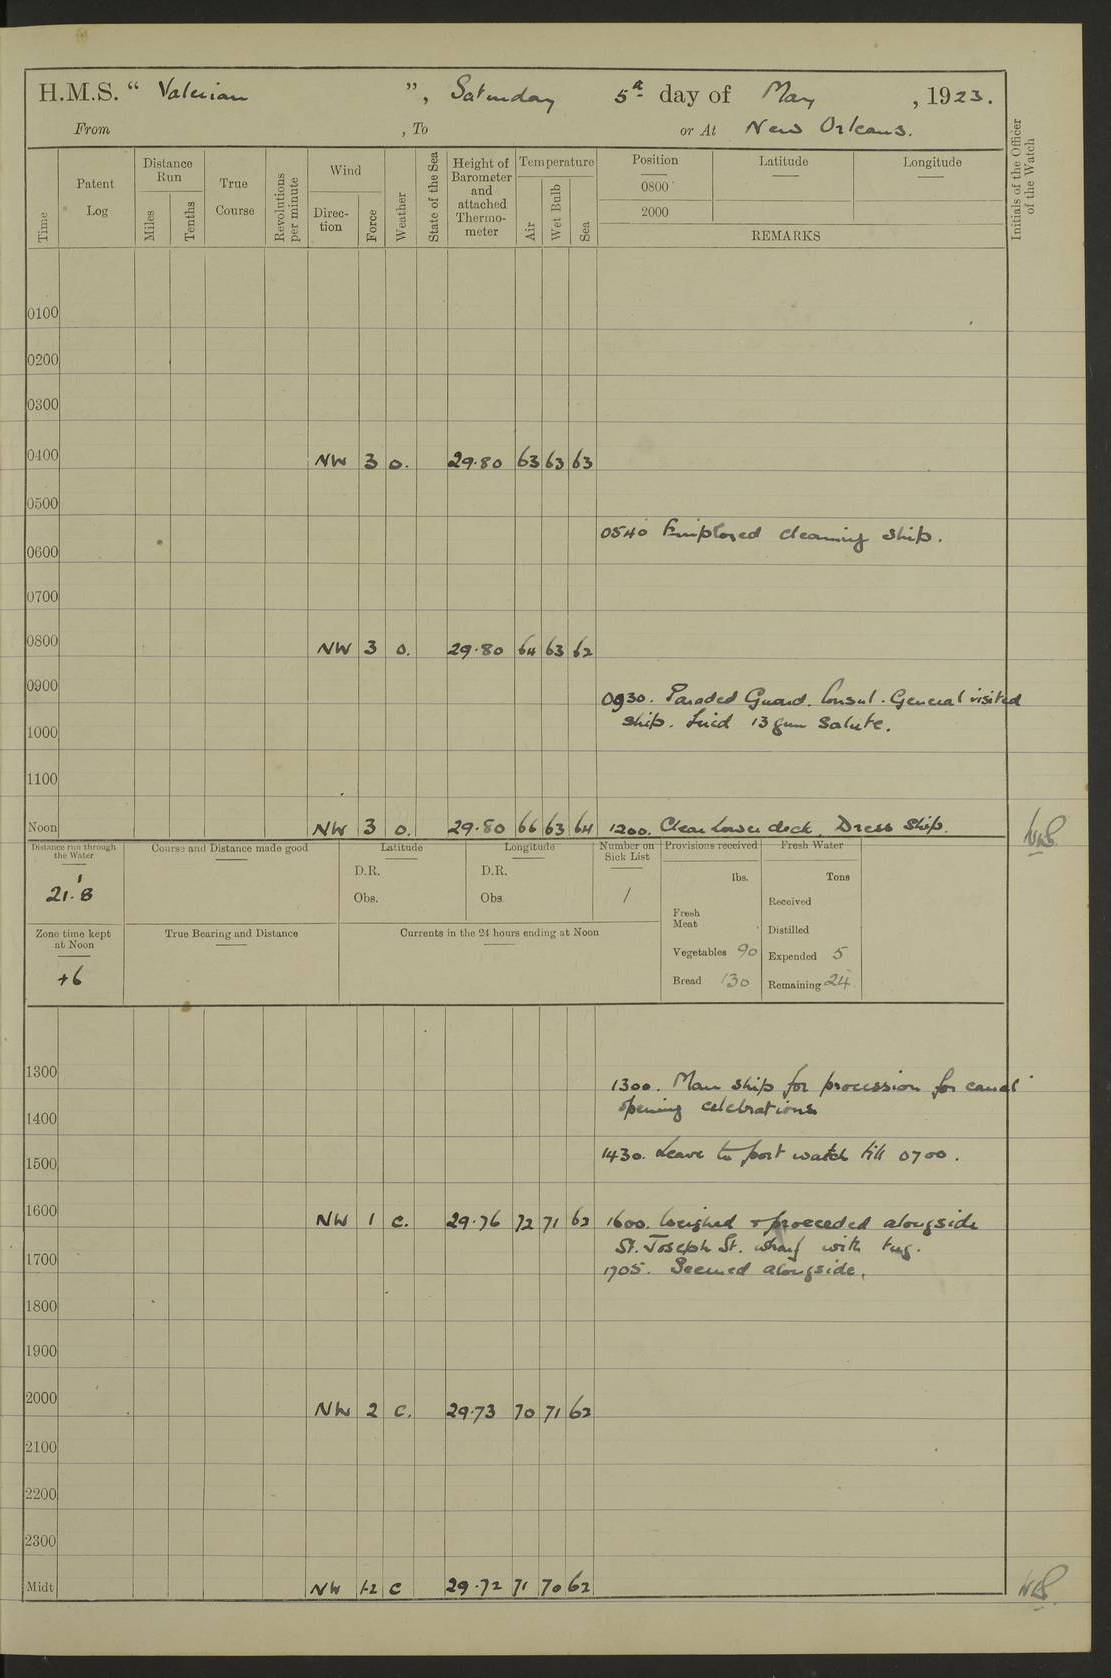 H.M.S. “ Valerian ”, Saturday 5th day of May , 1923.
From , To or At New Orleans.
Time
Patent Log
Distance Run
Miles
Tenths
True Course
Revolutions per minute
Wind
Direc-tion
Force
Weather
State of the Sea
Height of Barometer and attached Thermo-meter
Temperature
Air
Wet Bulb
Sea
Position
0800
2000
Latitude
Longitude
REMARKS
Initials of the Officer of the Watch
0100
0200
0300
0400 NW 3 o. 29.80 63 63 63
0500
0540 Employed cleaning ship.
0600
0700
0800 NW 3 o. 29.80 64 63 62
0900
0930. Paraded Guard. Consul-General visited
ship. Fired 13 gun Salute.
1000
1100
Noon NW 3 o. 29.80 66 63 64 1200. Clear lower deck. Dress Ship.
Distance run through the Water
21.8
Course and Distance made good
Latitude
D.R.
Obs.
Longitude
D.R.
Obs
Number on Sick List
1
Provisions received
lbs.
Fresh Meat
Vegetables 90
Bread 130
Fresh Water
Tons
Received
Distilled
Expended 5
Remaining 24
Zone time kept at Noon
+6
True Bearing and Distance
Currents in the 24 hours ending at Noon
1300
1300. Man ship for procession for canal
opening celebrations
1400
1430. Leave to port watch till 0700.
1500
1600 NW 1 c. 29.76 72 71 62 1600. Weighed & proceeded alongside
St. Joseph St. wharf with tug.
1700
1705. Secured alongside.
1800
1900
2000 NW 2 c. 29.73 70 71 62
2100
2200
2300
Midt NW 1-2 c 29.72 71 70 62